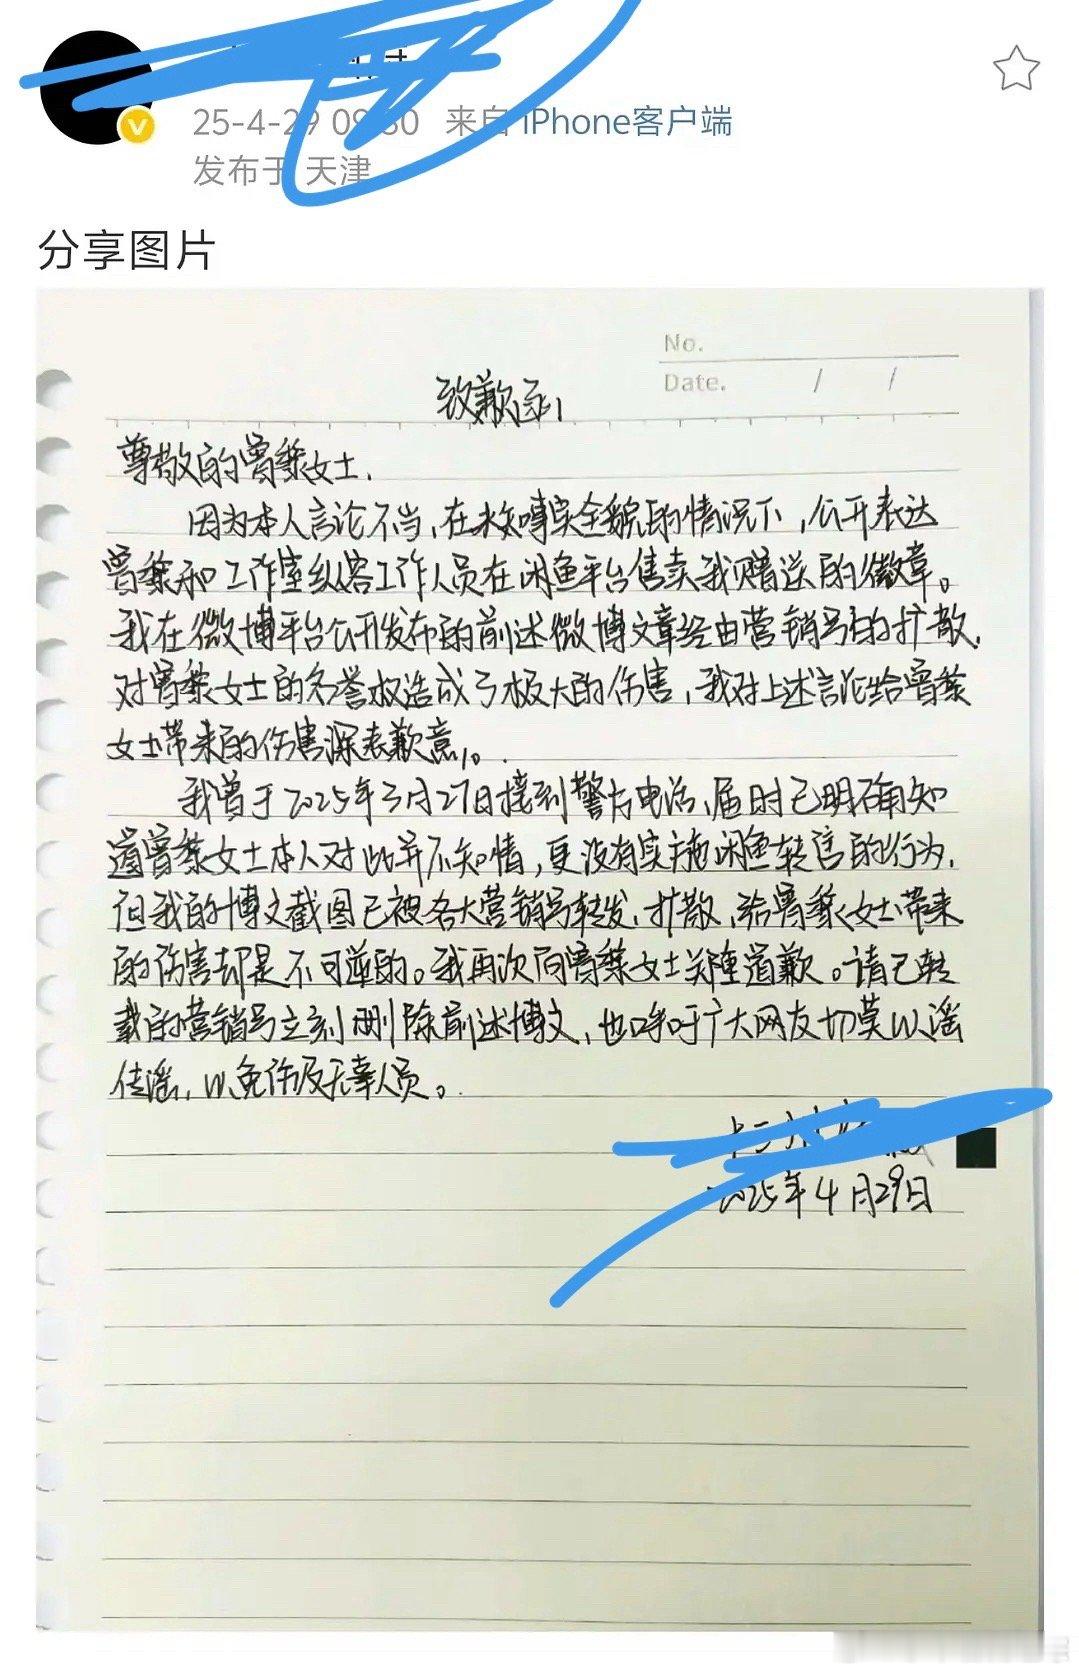 25-4-29 09:30 来自 iPhone客户端
发布于 天津
分享图片
No.
Date. / /
致歉函
尊敬的曾黎女士,
因为本人言论不当,在未知事实全貌的情况下,公开表达
曾黎和工作室纵容工作人员在闲鱼平台售卖我赠送的徽章。
我在微博平台公开发布的前述微博文章经由营销号的扩散,
对曾黎女士的名誉权造成了极大的伤害,我对上述言论给曾黎
女士带来的伤害深表歉意。
我曾于2025年3月27日接到警方电话,届时已明确知
道曾黎女士本人对此并不知情,更没有实施闲鱼转售的行为,
但我的博文截图已被各大营销号转发,扩散,给曾黎女士带来
的伤害却是不可逆的。我再次向曾黎女士郑重道歉。请已转
载的营销号立刻删除前述博文,也呼吁广大网友切莫以谣
传谣,以免伤及无辜人员。
2025年4月29日